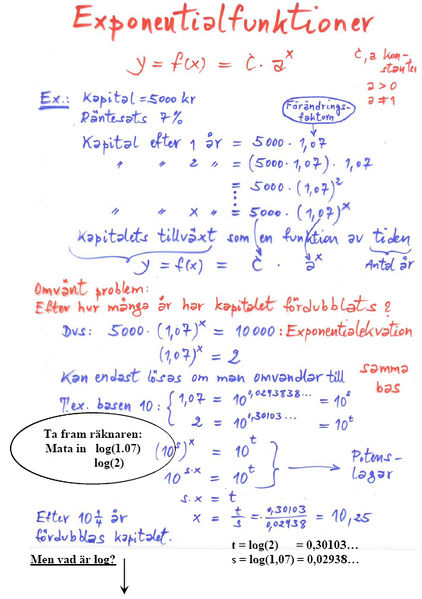 Exponentialfunktioner
y = f(x) = C · a^x
C, a kon-
stanter
a > 0
a ≠ 1
Ex.: Kapital = 5000 kr
Räntesats 7%
Förändrings-
faktorn
Kapital efter 1 år = 5000 · 1,07
" " 2 " = (5000 · 1,07) · 1,07
= 5000 · (1,07)²
⋮
" " x " = 5000 · (1,07)^x
Kapitalets tillväxt som en funktion av tiden
y = f(x) = C · a^x Antal år
Omvänt problem:
Efter hur många år har kapitalet fördubblats?
Dvs: 5000 · (1,07)^x = 10000 : Exponentialekvation
(1,07)^x = 2
Kan endast lösas om man omvandlar till samma
bas
T.ex. basen 10: { 1,07 = 10^0,0293838... = 10^s
2 = 10^0,30103... = 10^t
Ta fram räknaren:
Mata in log(1.07)
log(2)
(10^s)^x = 10^t
10^s·x = 10^t
Potens-
lagar
s·x = t
Efter 10 1/4 år x = t/s = 0,30103/0,02938 = 10,25
fördubblas kapitalet.
t = log(2) = 0,30103…
Men vad är log? s = log(1,07) = 0,02938…